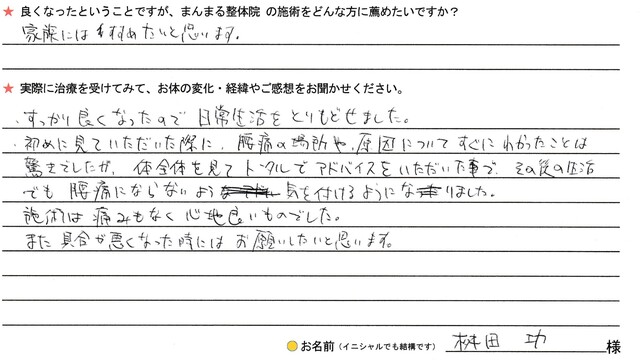 ★ 良くなったということですが、まんまる整体院 の施術をどんな方に薦めたいですか？
家族にはすすめたいと思います。
★ 実際に治療を受けてみて、お体の変化・経緯やご感想をお聞かせください。
・すっかり良くなったので 日常生活をとりもどせました。
・初めに見ていただいた際に、腰痛の場所や、原因についてすぐにわかったことは
驚きでしたが、体全体を見てトータルでアドバイスをいただいた事で、その後の生活
でも腰痛にならないよう気を付けるようになりました。
施術は痛みもなく心地良いものでした。
また具合が悪くなった時にはお願いしたいと思います。
お名前（イニシャルでも結構です） 桝田 功 様